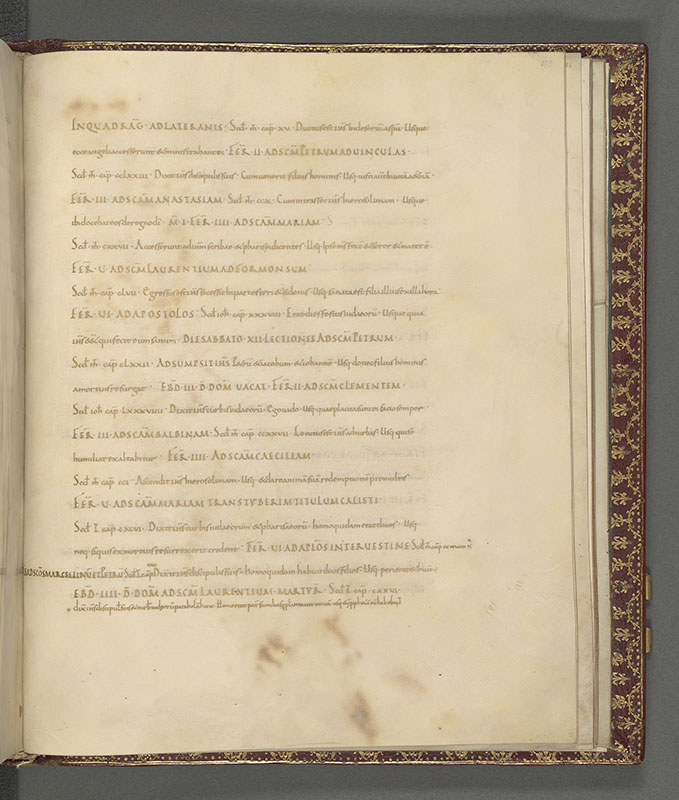 IN QUADRAG · AD LATERANIS · Secd m cap xv · Ductus est ihs in desertum ab spu · Usque
ecce angeli accesserunt & ministrabant ei · FER · II · AD SCM PETRUM AD UINCULAS ·
Secd m cap cclxxiii · Dixit ihs discipulis suis · Cum uenerit filius hominis · Usq iusti aut in uitam aeternam
FER · III · AD SCAM ANASTASIAM · Secd m ccx · Cum intrasset ihs hierosolimam · Usque
ibi docebat eos de regno di · FER · IIII · AD SCAM MARIAM
Secd m cxxvii · Accesserunt ad ihm scribae & pharisaei dicentes · Usq ipse meus frater & soror & mater e
FER · U · AD SCM LAURENTIUM AD FORMONSUM ·
Secd m cap clvii · Egressus est ihs secessit in partes tyri & sidonis · Usq sanata est filia illius ex illa hora ·
FER · UI · AD APOSTOLOS · Secd ioh cap xxxviii · Erat dies festus iudaeorum · Usque quia
ihs esset qui fecit eum sanum · DIE SABBATO · XII · LECTIONES AD SCM PETRUM
Secd m cap clxxii · ADSUMPSIT IHS Petrum & iacobum & iohannem · Usq donec filius hominis
a mortuis resurgat · EBD · III · D DOM UACAT · FER · II · AD SCM CLEMENTEM ·
Secd ioh cap lxxxviiii · Dixit ihs turbis iudaeorum · Ego uado · Usq quae placita sunt ei facio semper ·
FER · III · AD SCAM BALBINAM · Secd m cap ccxxvii · Locutus est ihs ad turbas · Usq qui se
humiliat exaltabitur · FER · IIII · AD SCAM CAECILIAM ·
Secd m cap cci · Ascendit ihs hierosolimam · Usq & dare animam suam redemptionem pro multis
FER · U · AD SCAM MARIAM TRANSTYBERIM TITULUM CALISTI
Secd L cap cxcvi · Dixit ihs turbis iudaeorum & pharisaeorum · homo quidam erat diues · Usq
neq si quis ex mortuis resurrexerit credent · FER · UI · AD APLOS IN TERUESTINE · Secd m cap
AD SCOS MARCELLINUM ET PETRUM · Secd L cap Dixit ihs discipulis suis · Homo quidam habuit duos filios · Usq perierat &
EBD · IIII · D DOM AD SCM LAURENTIUM · MARTYR · Secd L cap · cxxvi ·